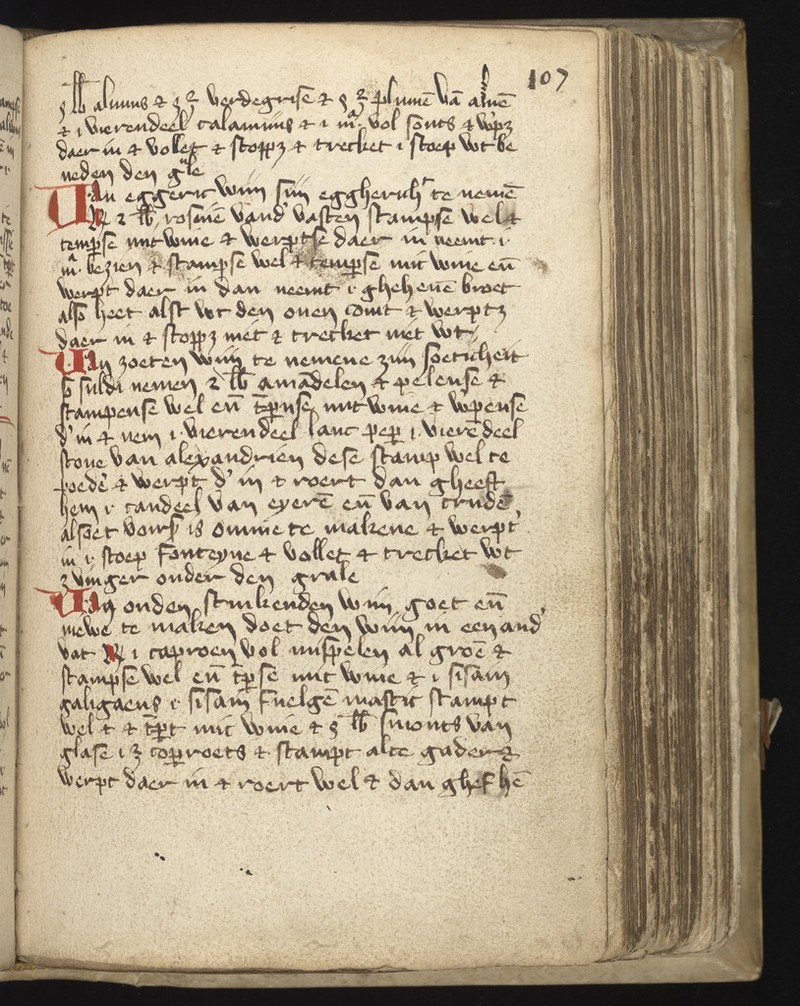 107
lb aluuns & verdegrise & plumē vā aluē
& i vierendeel calamus & i vol souts & w'pz
daer in & vollet & stoppz & trecket i stoep wt be
neden den g͛le
Van eggeric wijn sijn eggherich͛ te nemē
R 2 lb rosinē vand' vasten stampse wel &
tempse mit wine & werptse daer in neemt i
bezien & stampse wel & tempse mit wine eñ
werpt daer in dan neemt i gheheuē broet
also heet alst wt den ouen comt & werptz
daer in & stoppz met & trecket niet wt
Van zoeten wijn te nemene zijn soeticheit
so suldi nemen 2 lb amādelen & pelense &
stampense wel eñ tp̄nse mit wine & w'pense
d' in & nem i vierendeel lanc pep i vierēdeel
stoue van alexandrien dese stamp wel te
poed' & werpt d' in & roert dan gheeft
hem i candeel van eyerē eñ van crude
alsoet vors is omme te makene & werpt
in i stoep fonteyne & vollet & trecket wt
3 vinger onder den grale
Van onden stinkenden wijn goet eñ
niewe te maken doet den wijn in een and'
vat R i caproen vol mispelen al groē &
stampse wel eñ tp̄se mit wine & i sisam
galigaens i sisam fuelgē mastic stampt
wel & & tp̄t mit wine & lb smouts van
glase i 3 coproets & stampt alte gader &
werpt daer in & roert wel & dan ghef hē